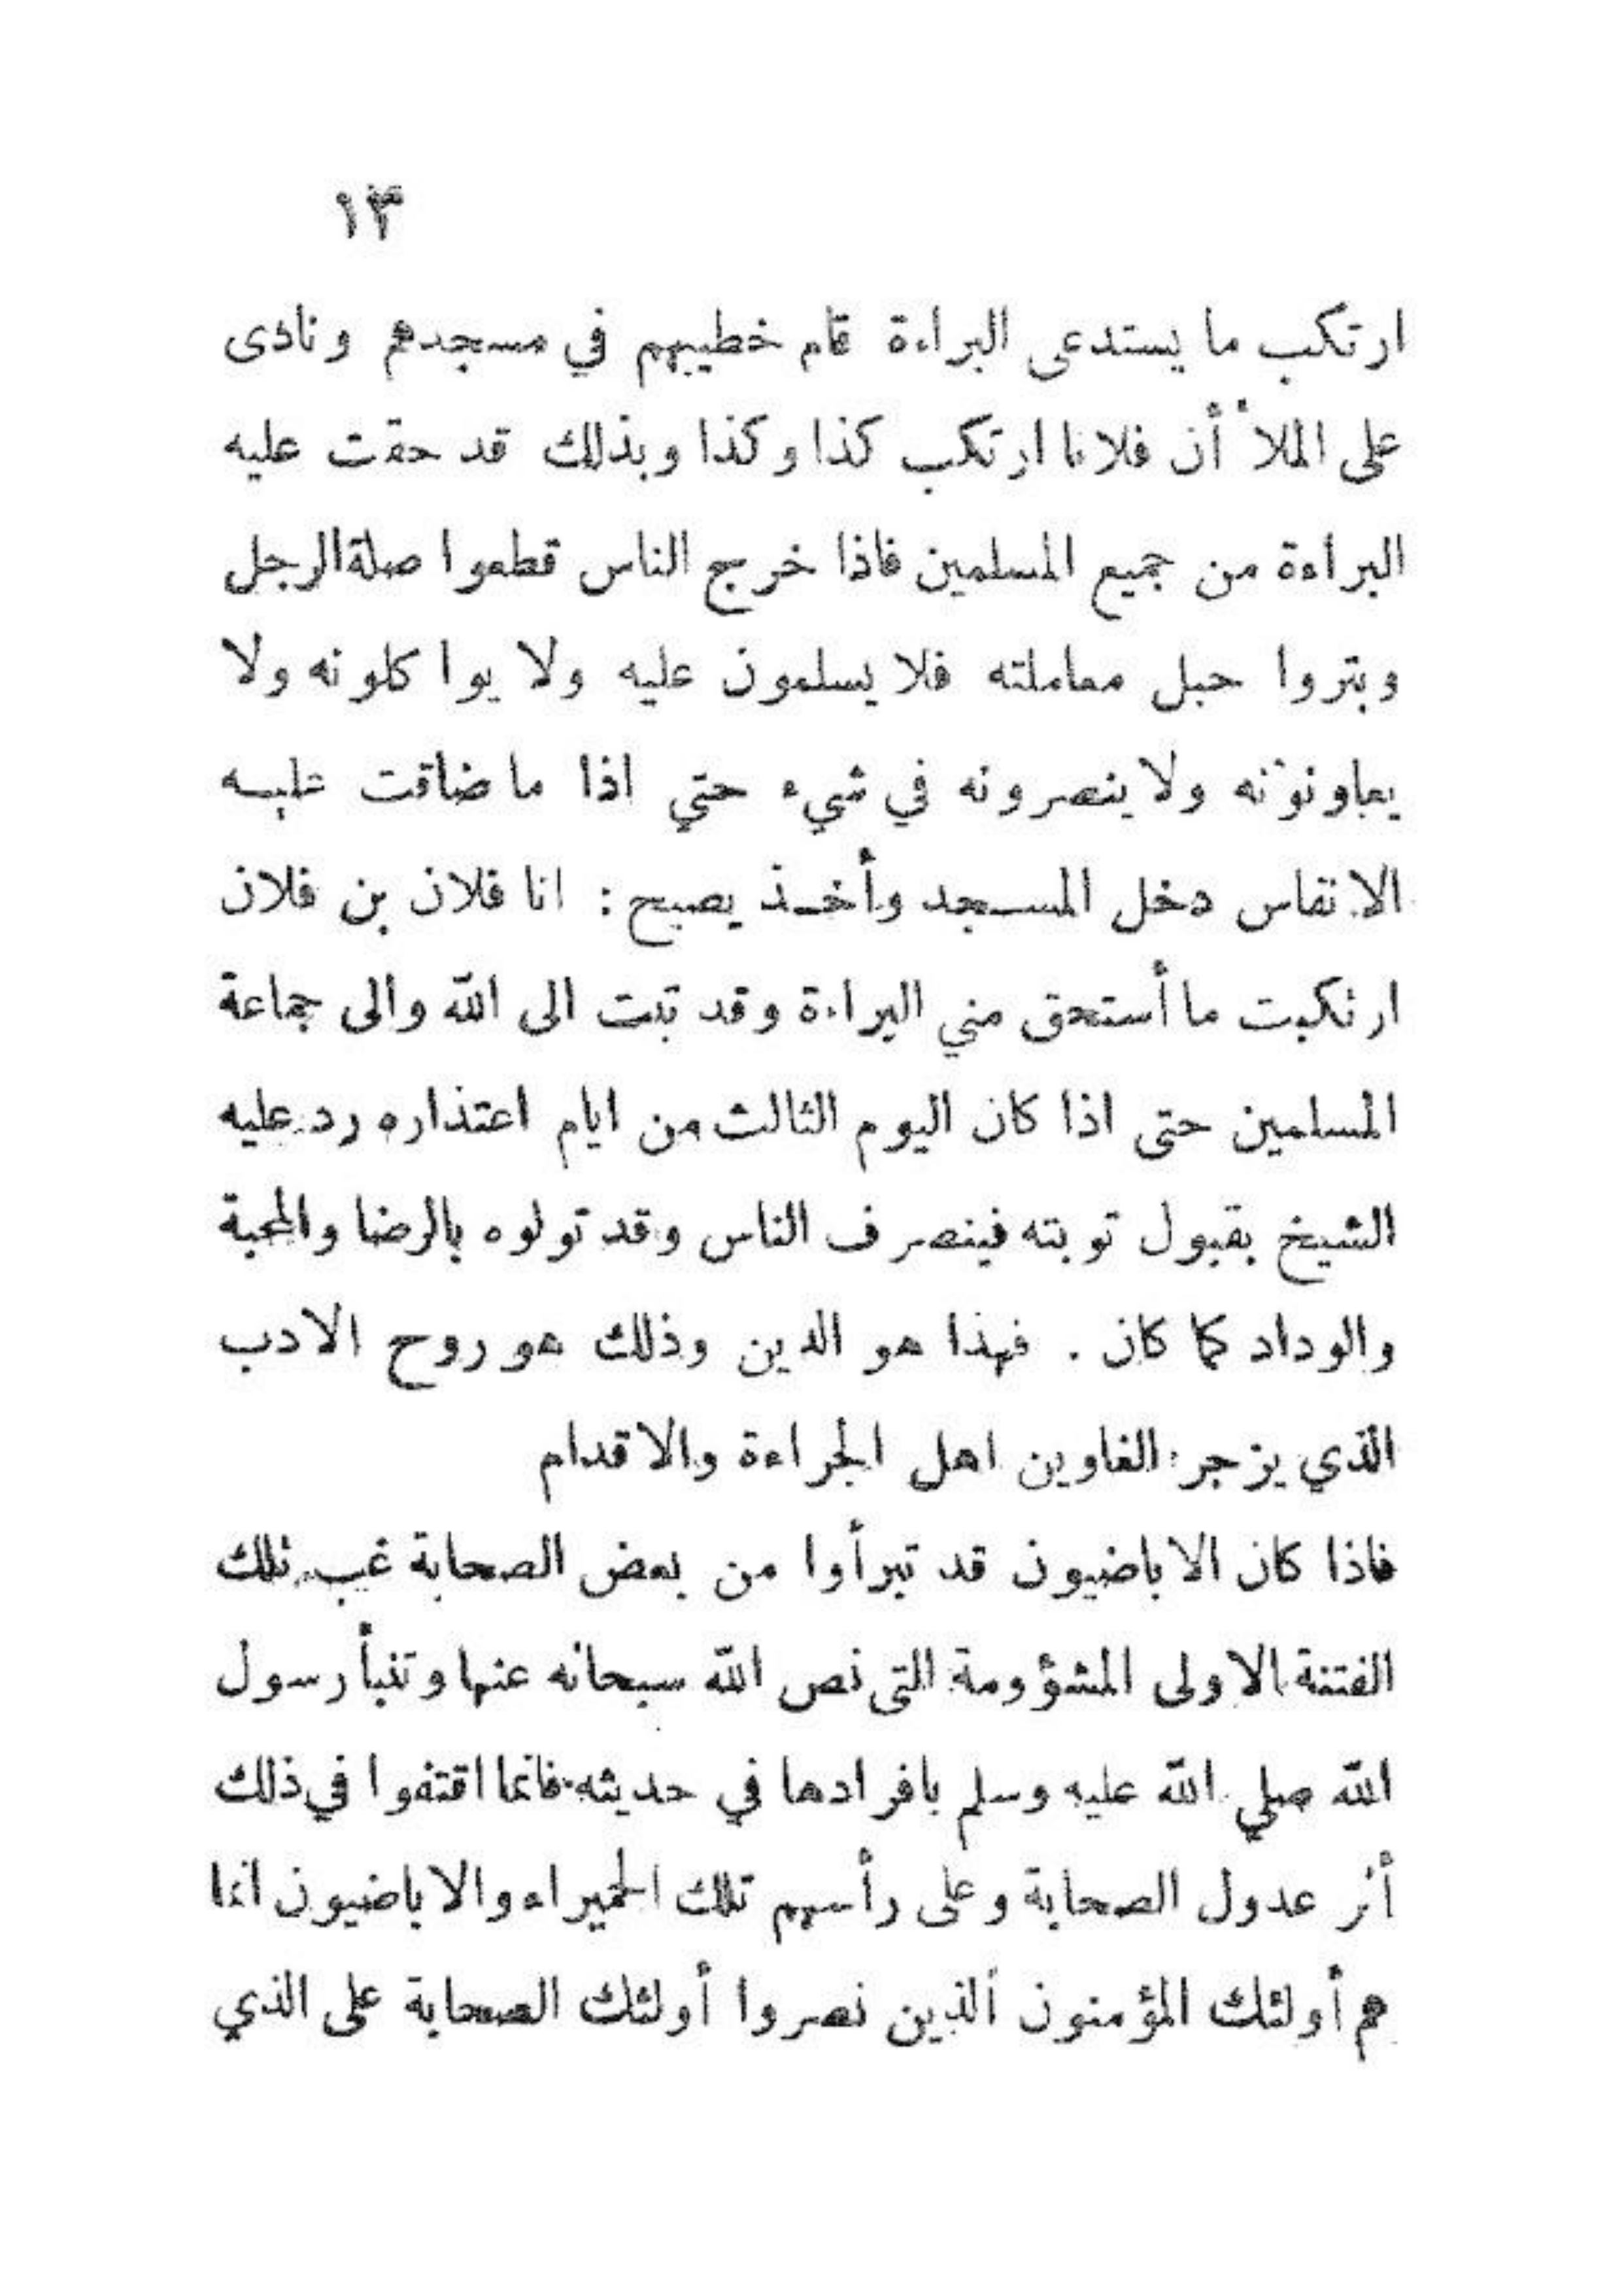 ١٣
ارتكب ما يستدعى البراءة قام خطيبهم في مسجدهم ونادى
على الملأ أن فلانا ارتكب كذا وكذا وبذلك قد حقت عليه
البراءة من جميع المسلمين فاذا خرج الناس قطعوا صلة الرجل
وبتروا حبل معاملته فلا يسلمون عليه ولا يوا كلونه ولا
يعاونونه ولا ينصرونه في شيء حتي اذا ما ضاقت عليه
الانفاس دخل المسجد وأخذ يصيح : انا فلان بن فلان
ارتكبت ما أستحق مني البراءة وقد تبت الى الله والى جماعة
المسلمين حتى اذا كان اليوم الثالث من ايام اعتذاره رد عليه
الشيخ بقبول توبته فينصرف الناس وقد تولوه بالرضا والمحبة
والوداد كما كان . فهذا هو الدين وذلك هو روح الادب
الذي يزجر الغاوين اهل الجراءة والاقدام
فاذا كان الاباضيون قد تبرأوا من بعض الصحابة غب تلك
الفتنة الاولى المشؤومة التى نص الله سبحانه عنها وتنبأ رسول
الله صلي الله عليه وسلم بافرادها في حديثه فانما اقتفوا في ذلك
أثر عدول الصحابة وعلى رأسهم تلك الحميراء والاباضيون انما
هم أولئك المؤمنون الذين نصروا أولئك الصحابة على الذي